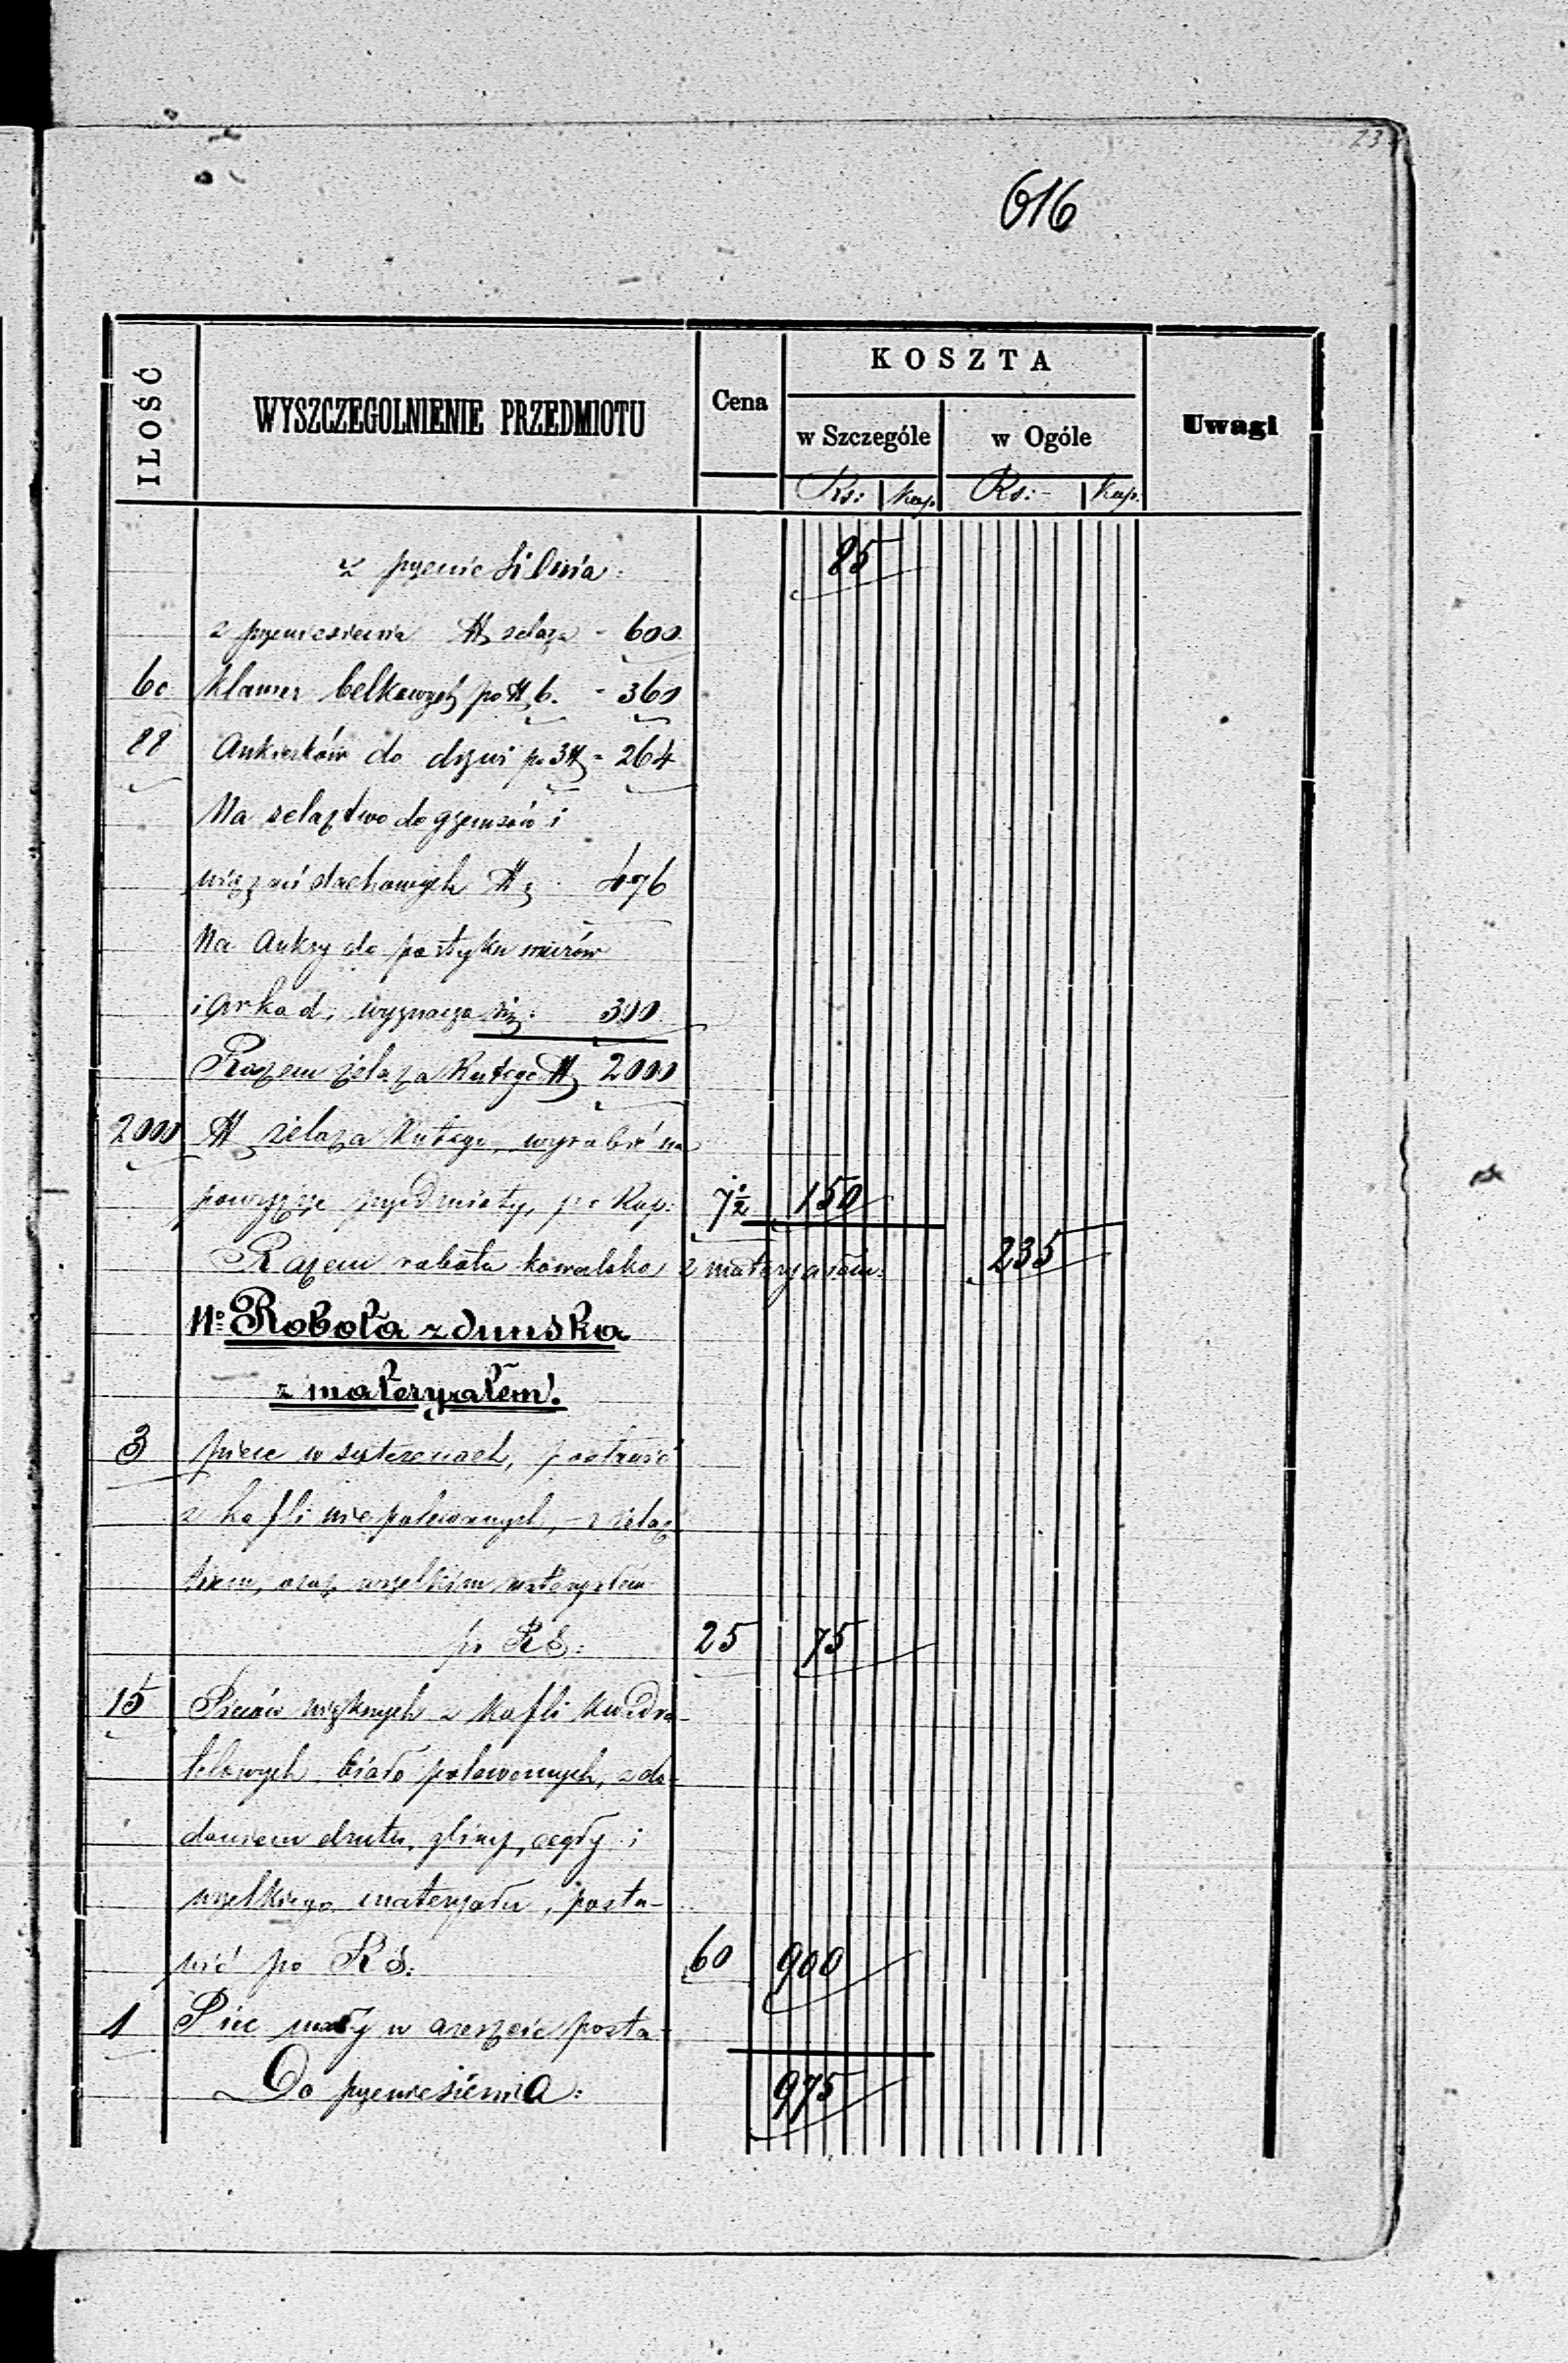 23
616
ILOŚĆ WYSZCZEGOLNIENIE PRZEDMIOTU Cena KOSZTA Uwagi
w Szczególe w Ogóle
Rs: Kop. Rs:- Kop.
z przenie 85
z przeniesienia ℔ żelaza - 600
60 klamer belkowych po ℔ 6. - 360
88 Ankierków do drzwi po 3 ℔ - 264
Na żelaztwo do gzemsów i
wiązań dachowych ℔ 476
Na Ankry do portyku murów
i Arkad, wyznacza się: 300
Razem żelaza kutego ℔ 2000
2000 ℔ żelaza kutego, wyrobić na
powyższe przedmioty, po Kop: 7½ 150
Razem robota kowalska z materyałem: 235
N° Robota zduńska
z materyałem.
3 piece w suterenach, postawić
z kafli niepolewanych, - z żelaz
twem, oraz wszelkim materyałem
po RS: 25 75
15 Pieców większych z kafli kwadra-
tólowych biało polewonych, z do-
daniem drutu, gliny, cegły i
wszelkiego materyału, posta-
wić po RS. 60 900
1 Piec mały w areszcie posta-
Do przeniesienia: 975